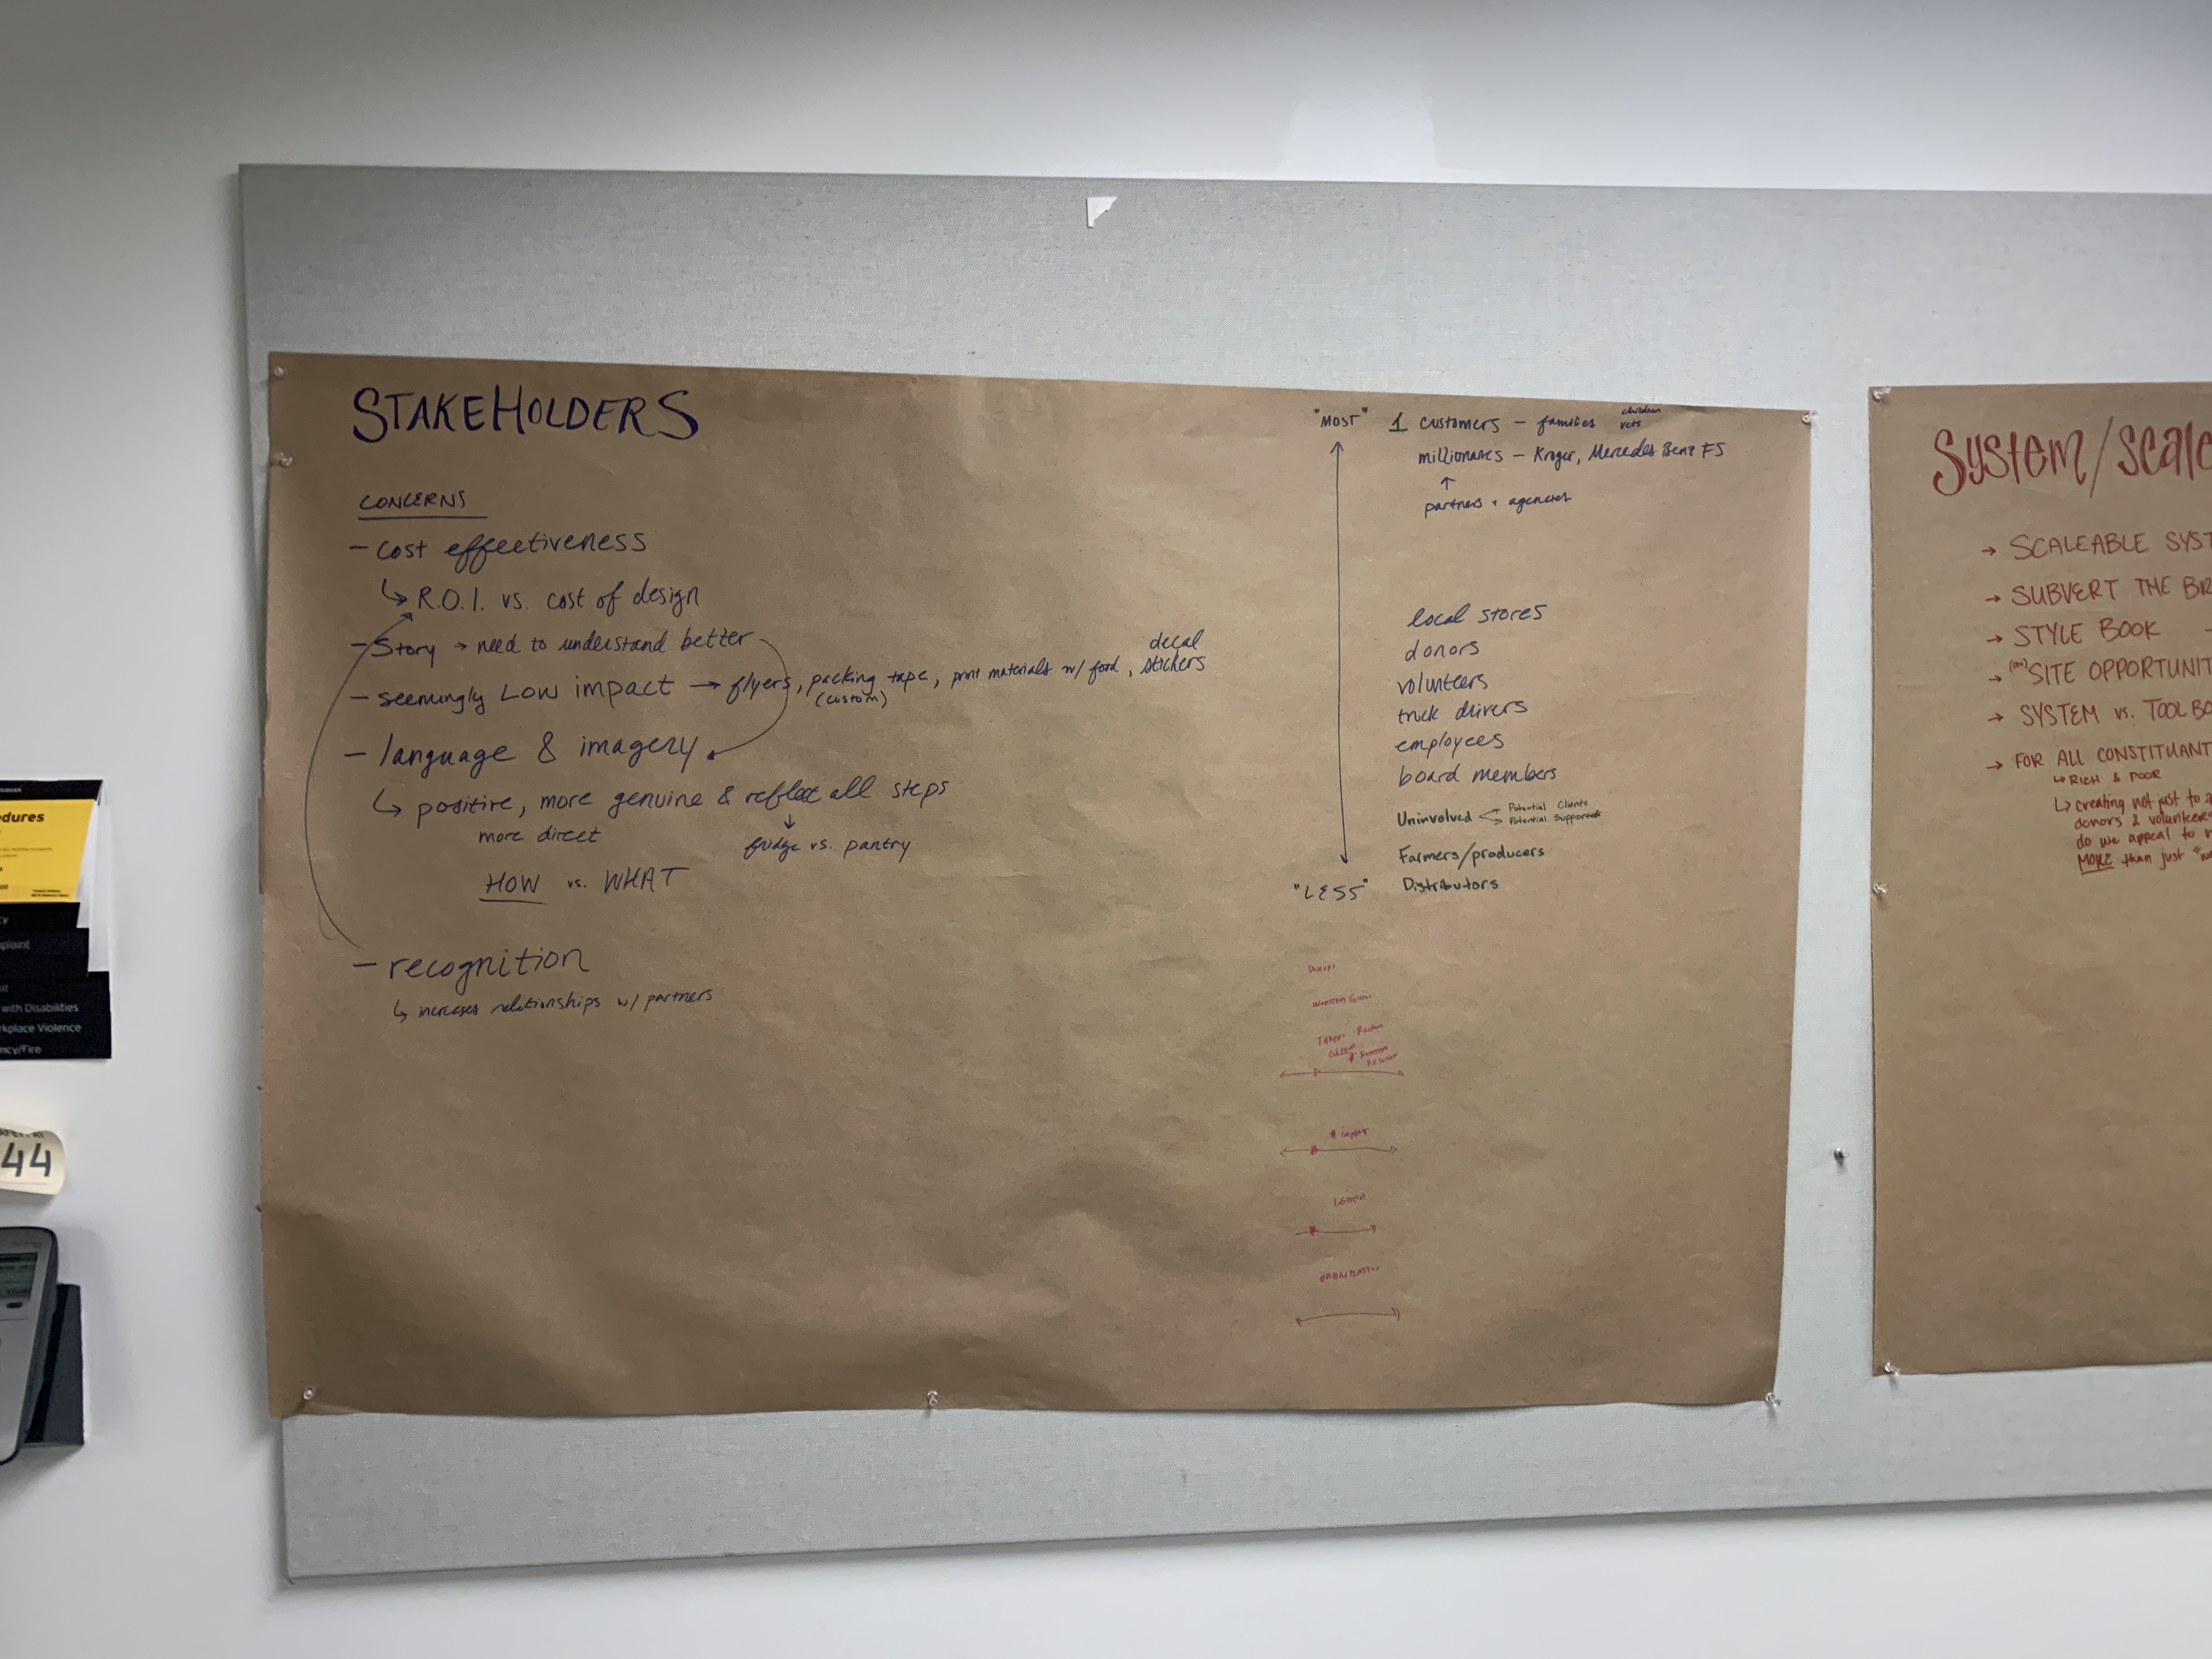 STAKEHOLDERS
CONCERNS
- cost effectiveness
↳ R.O.I. vs. cost of design
- Story → need to understand better
- seemingly LOW impact → flyers, packing tape, print materials w/ food, decal stickers
(custom)
- language & imagery
↳ positive, more genuine & reflect all steps
more direct
↓
fridge vs. pantry
HOW vs. WHAT
- recognition
↳ increases relationships w/ partners
"MOST"
1 customers - families children
vets
millionares - Kroger, Mercedes Benz FS
↑
partners + agencies
local stores
donors
volunteers
truck drivers
employees
board members
Uninvolved
Potential Clients
Potential Supporters
Farmers/producers
Distributors
"LESS"
System/scale
→ SCALEABLE SYST
→ SUBVERT THE BR
→ STYLE BOOK -
→ (on) SITE OPPORTUNIT
→ SYSTEM vs. TOOLBO
→ FOR ALL CONSTITUANT
↳ RICH & POOR
↳ creating not just to a
donors & volunteers
do we appeal to
MORE than just "w
edures
plaint
with Disabilities
rkplace Violence
ncy/Fire
44